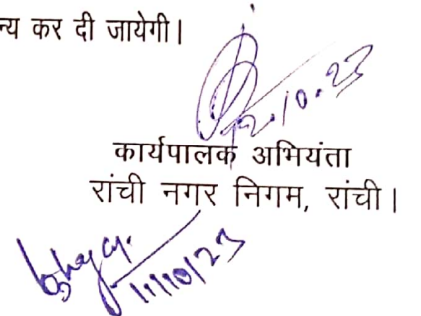 न्य कर दी जायेगी।
12.10.23
कार्यपालक अभियंता
रांची नगर निगम, रांची।
11/10/23